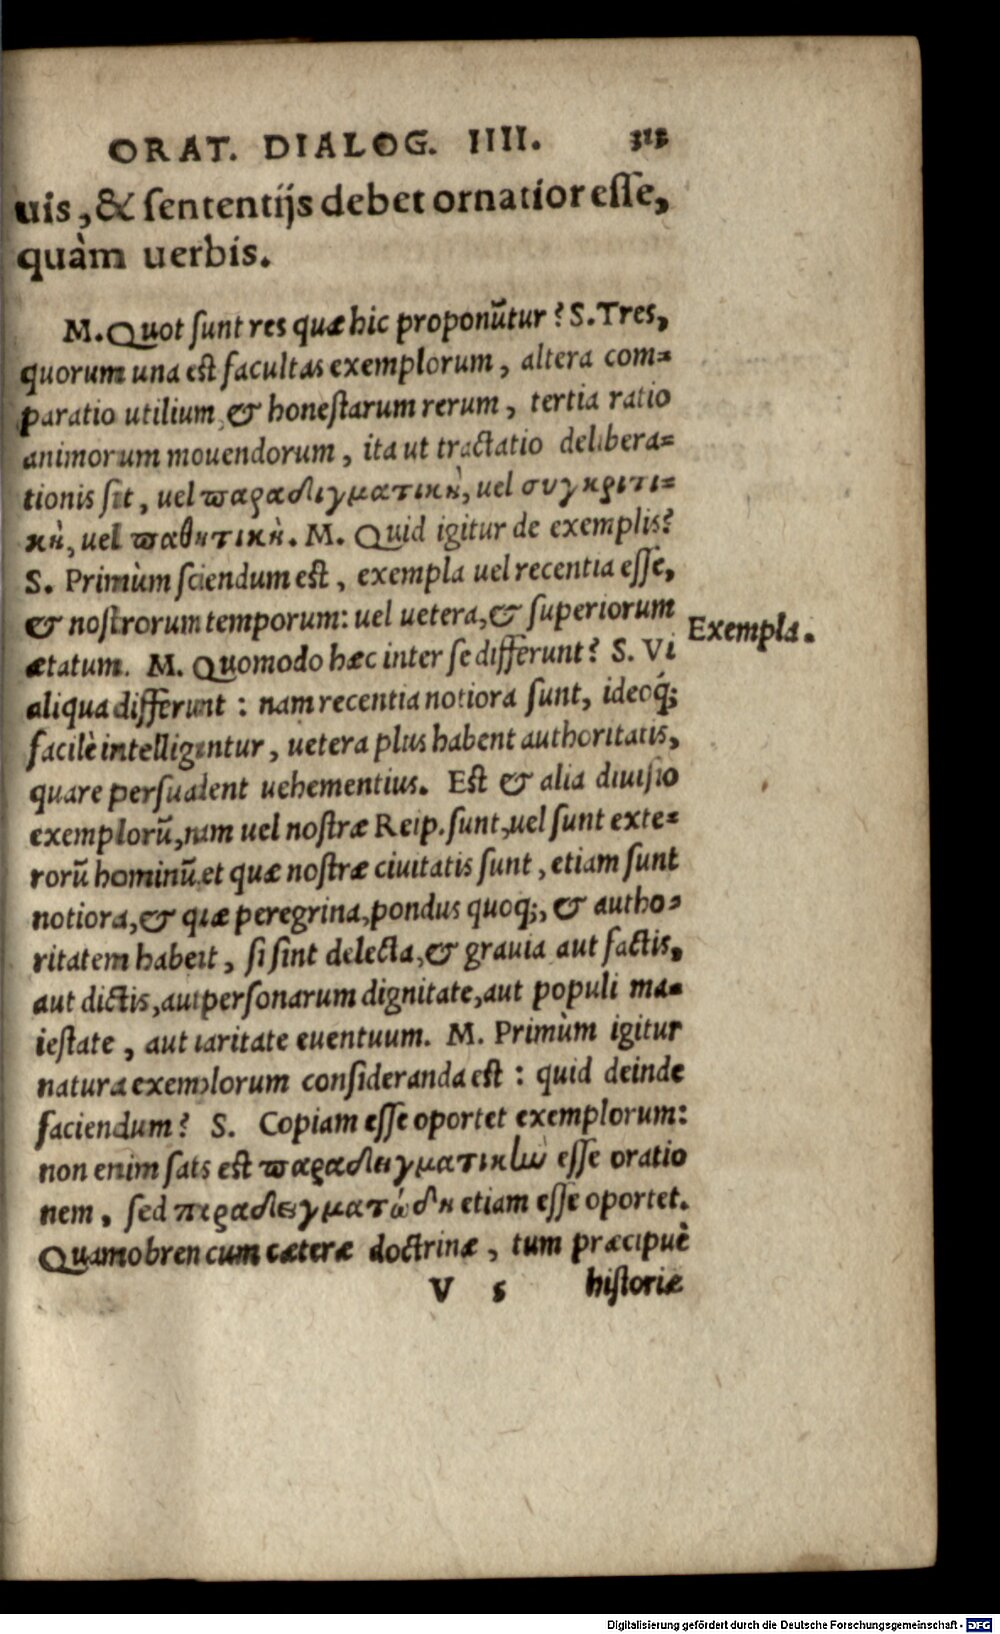 ORAT. DIALOG. IIII. 313
uis, & sententijs debet ornatior esse,
quàm uerbis.
M. Quot sunt res quæ hic proponũtur? S. Tres,
quorum una est facultas exemplorum, altera com=
paratio utilium, & honestarum rerum, tertia ratio
animorum mouendorum, ita ut tractatio delibera=
tionis sit, uel παραδειγματικὴ, uel συγκριτι=
κὴ, uel παθητικὴ. M. Quid igitur de exemplis?
S. Primùm sciendum est, exempla uel recentia esse,
& nostrorum temporum: uel uetera, & superiorum
ætatum. M. Quomodo hæc inter se differunt? S. Vi
Exempla.
aliqua differunt: nam recentia notiora sunt, ideoq́;
facilè intelliguntur, uetera plus habent authoritatis,
quare persuadent uehementius. Est & alia diuisio
exemplorũ, nam uel nostræ Reip. sunt, uel sunt exte=
rorũ hominũ et quæ nostræ ciuitatis sunt, etiam sunt
notiora, & quæ peregrina, pondus quoq;, & autho=
ritatem habent, si sint delecta, & grauia aut factis,
aut dictis, aut personarum dignitate, aut populi ma=
iestate, aut raritate euentuum. M. Primùm igitur
natura exemplorum consideranda est: quid deinde
faciendum? S. Copiam esse oportet exemplorum:
non enim satis est παραδειγματικὴν esse oratio
nem, sed παραδειγματώδη etiam esse oportet.
Quamobrem cum cæteræ doctrinæ, tum præcipuè
V 5 historiæ
Digitalisierung gefördert durch die Deutsche Forschungsgemeinschaft - DFG